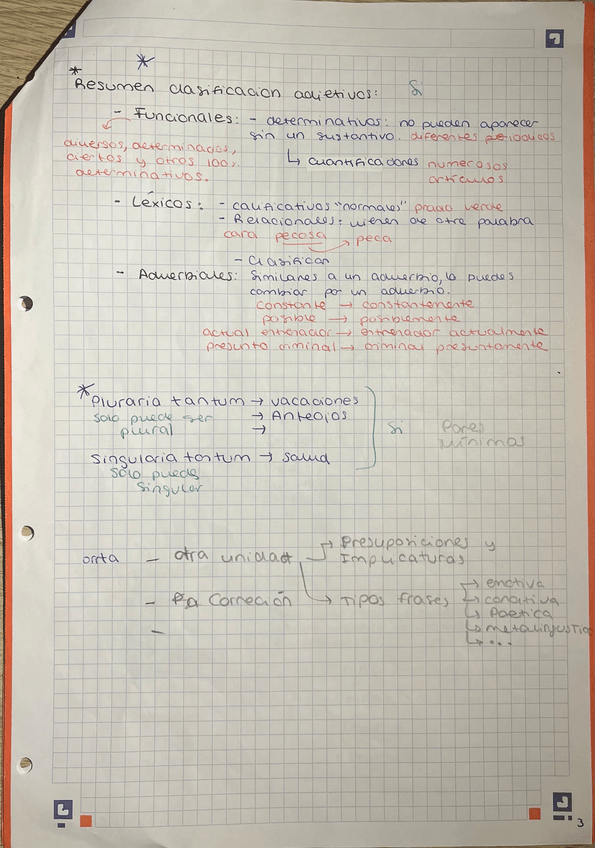 * *
Resumen clasificacion adjetivos: Si
- Funcionales: - determinativos: no pueden aparecer
sin un sustantivo. diferentes periodicos
diversos, determinados,
ciertos y otros 100%
determinativos.
↳ cuantificadores numerosos
articulos
- Léxicos: - calificativos "normales" prado verde
- Relacionales: vienen de otra palabra
cara pecosa → peca
- Clasifican
- Adverbiales: Similares a un adverbio, lo puedes
cambiar por un adverbio.
constante → constantemente
posible → posiblemente
actual entrenador → entrenador actualmente
presunto criminal → criminal presuntamente
* Pluraria tantum → vacaciones
solo puede ser → Anteojos
plural →
Si Pares
mínimos
Singularia tantum → salud
Solo puede
singular
- otra unidad → Presuposiciones y
Implicaturas
- Correción
→ Tipos frases → emotiva
→ conativa
→ Poetica
→ metalingüística
↳ ...
-
3